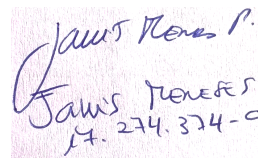 Janis Meneses P.
Janis Meneses
17.274.374-0